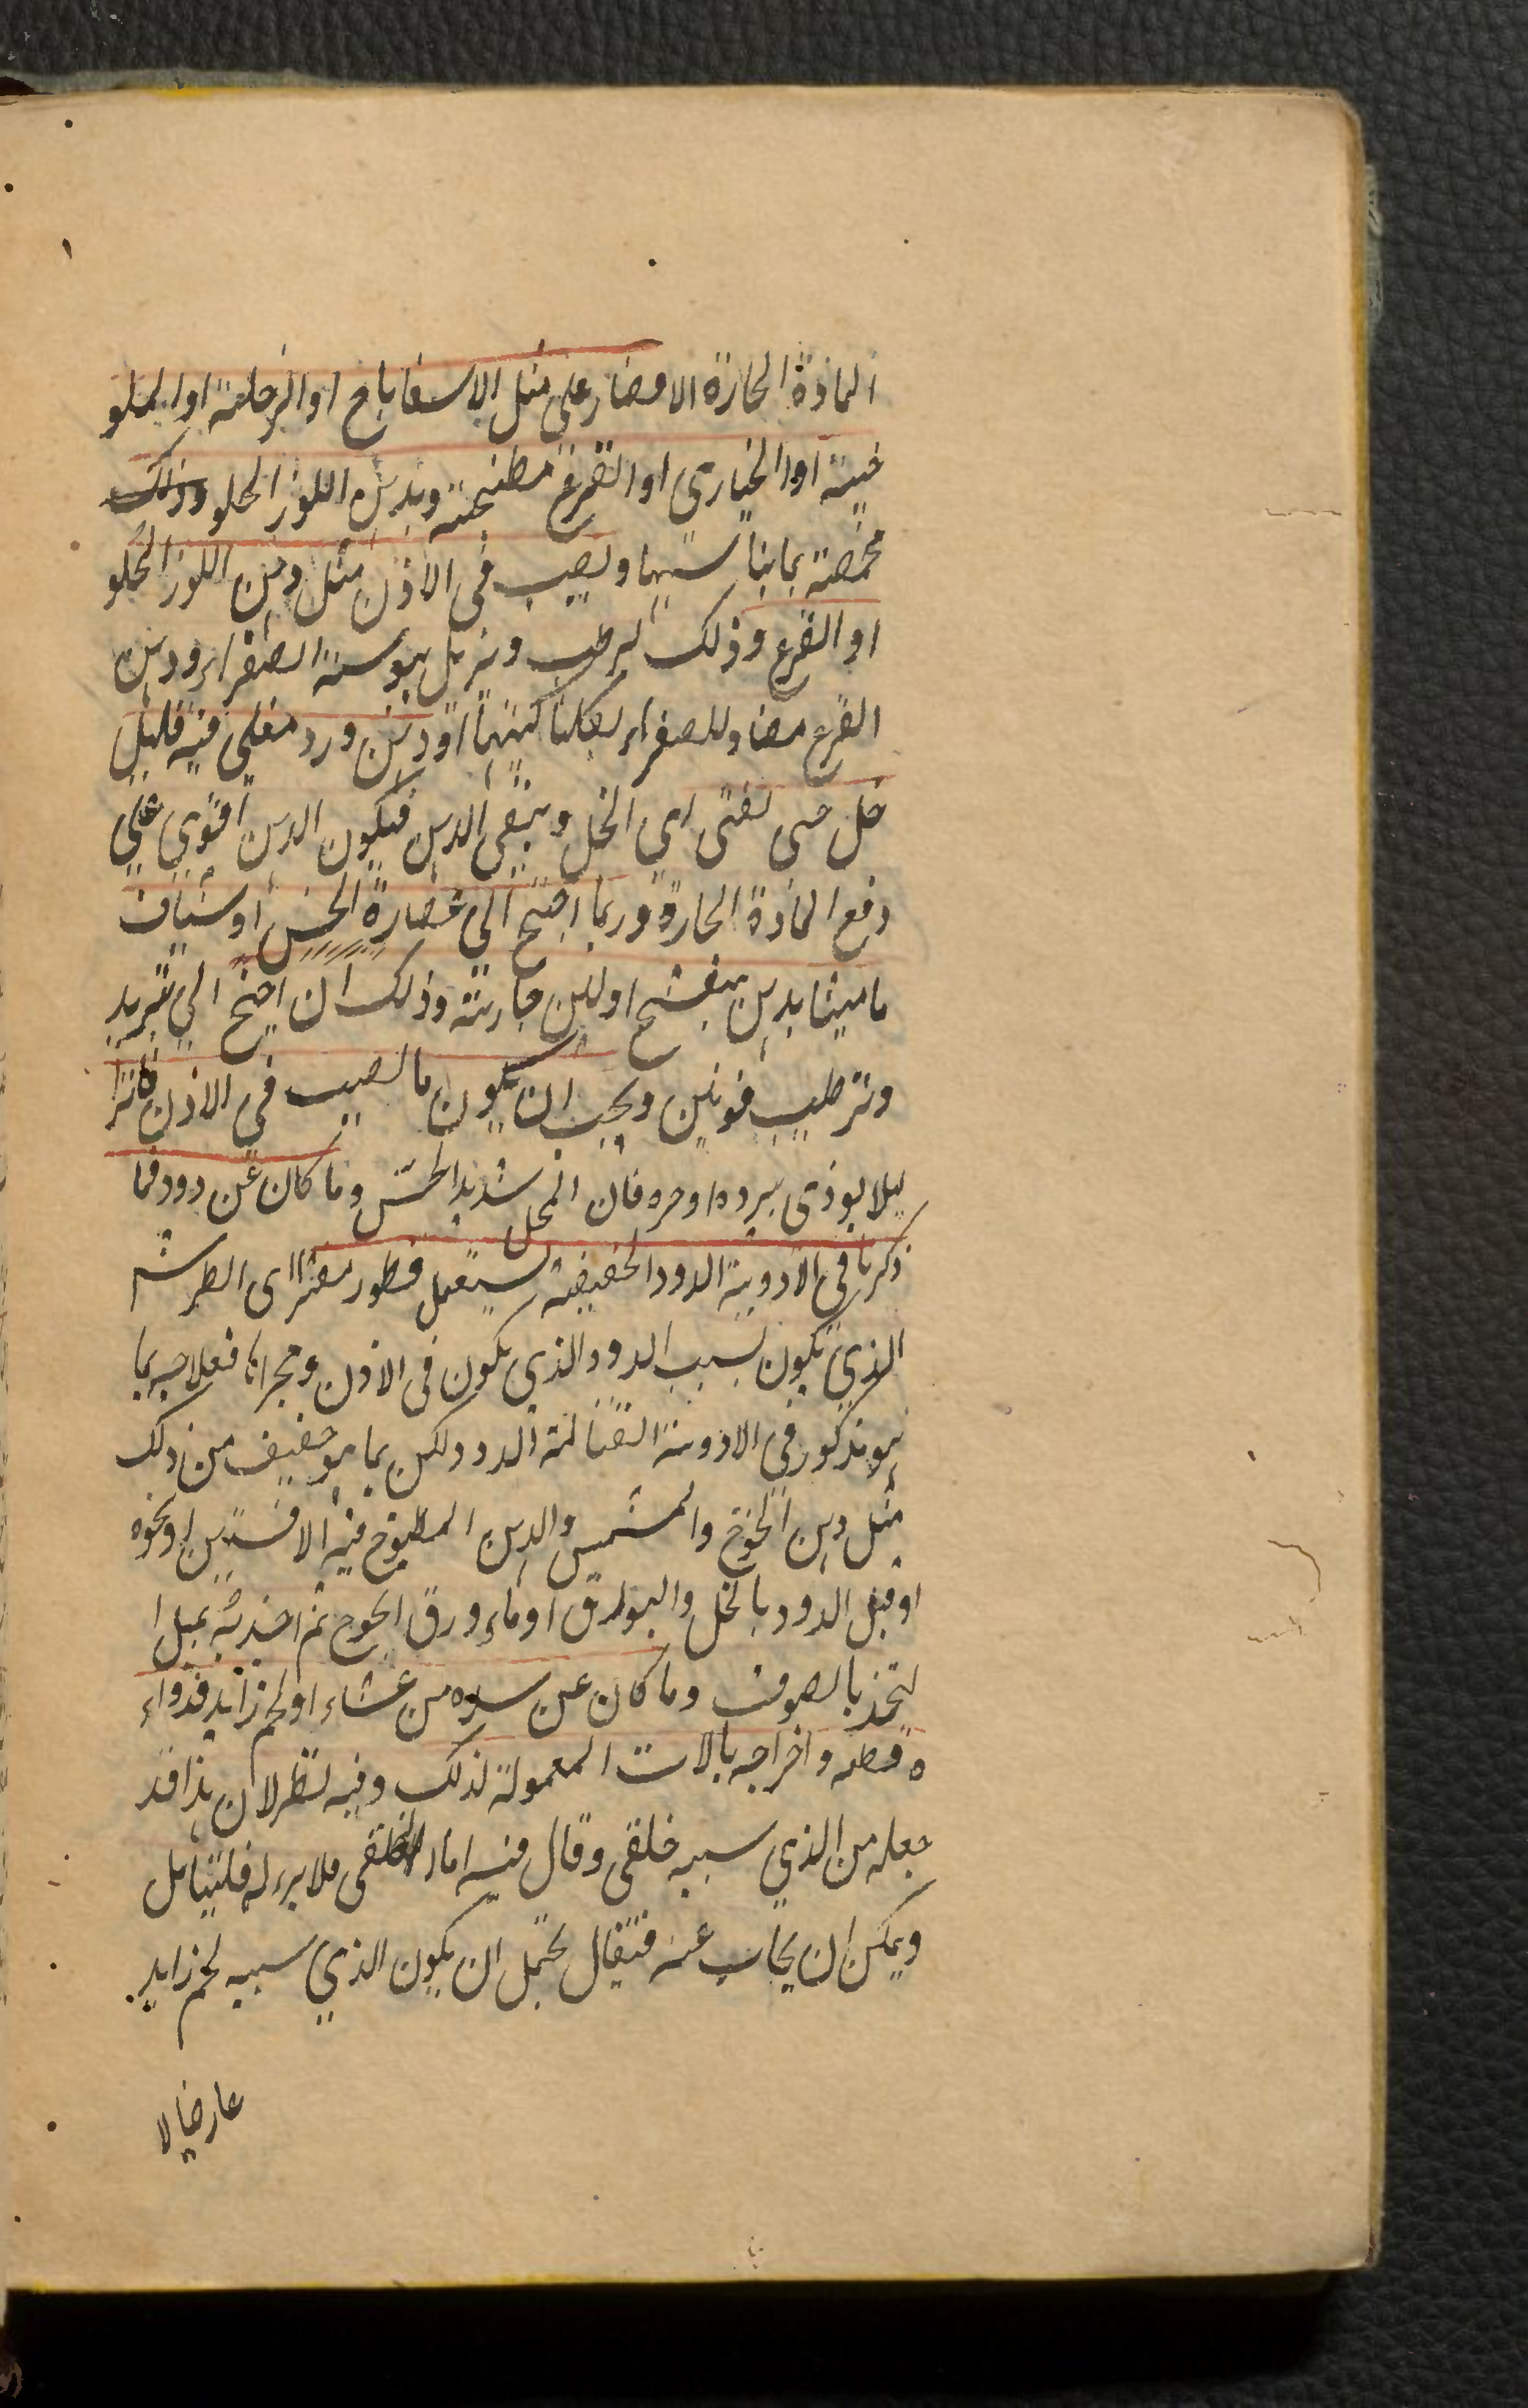 المادة الحارة الاقتصار على مثل الاسفاناخ او الرجلة او الملو
خية او الخبازى او القرع مطبخة وبدهن اللوز الحلو وذلك
محمضة بما يناسبها ويصب في الاذن مثل دهن اللوز الحلو
او القرع وذلك ليرطب ويزيل يبوسة الصفراء ودهن
القرع مضاد للصفراء بكلتا كيفيتها او دهن ورد مغلى فيه قليل
خل حتى يفنى اي الخل ويبقى الدهن فيكون الدهن اقوي على
دفع المادة الحارة وربما احتيج الى عصارة الخس او شياف
ماميثا بدهن بنفسج او لبن جارية وذلك ان احتيج الي تبريد
وترطيب قويين ويجب ان يكون ما يصب في الاذن فاترا
ليلا يوذى ببرده او حره فان المحل شديد الحس وما كان عن دود فما
ذكرنا في الادوية الدود الخفيفة يستعمل قطور مفترا اى الطرش
الذي يكون بسبب الدود الذي يكون في الاذن ومجراها فعلاجه بما
هو مذكور في الادوية القتالة الدود ولكن بما هو خفيف من ذلك
مثل دهن الخوخ والمشمس والدهن المطبوخ فيه الافسنتين او نحوه
او قتل الدود بالخل والبورق او ماء ورق الخوخ ثم اخذ بشه بميل ا
يتخذ بالصوف وما كان عن سده من غشاء او لحم زايد فدواء
ه قطعه واخراجه بالالات المعمولة لذلك وفيه نظر لان هذا قد
جعله من الذي سببه خلقى وقال فيه اما الخلقى فلا برء له فليتامل
ويمكن ان يجاب عنه فيقال يحتمل ان يكون الذي سببه لحم زايد
عارضا لا